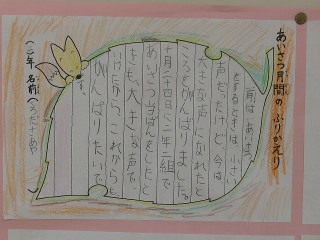 あいさつ月間のふりかえり
二年 名前(
一月は、あいさつ
をするときは、小さい
声だったけど、今は
大きな声になれたと
ころをがんばりました。
十月二十四日に二年二組で
あいさつ当ばんをしたと
きも大きな声で、
けたから、これからも
がんばりたいで
す。